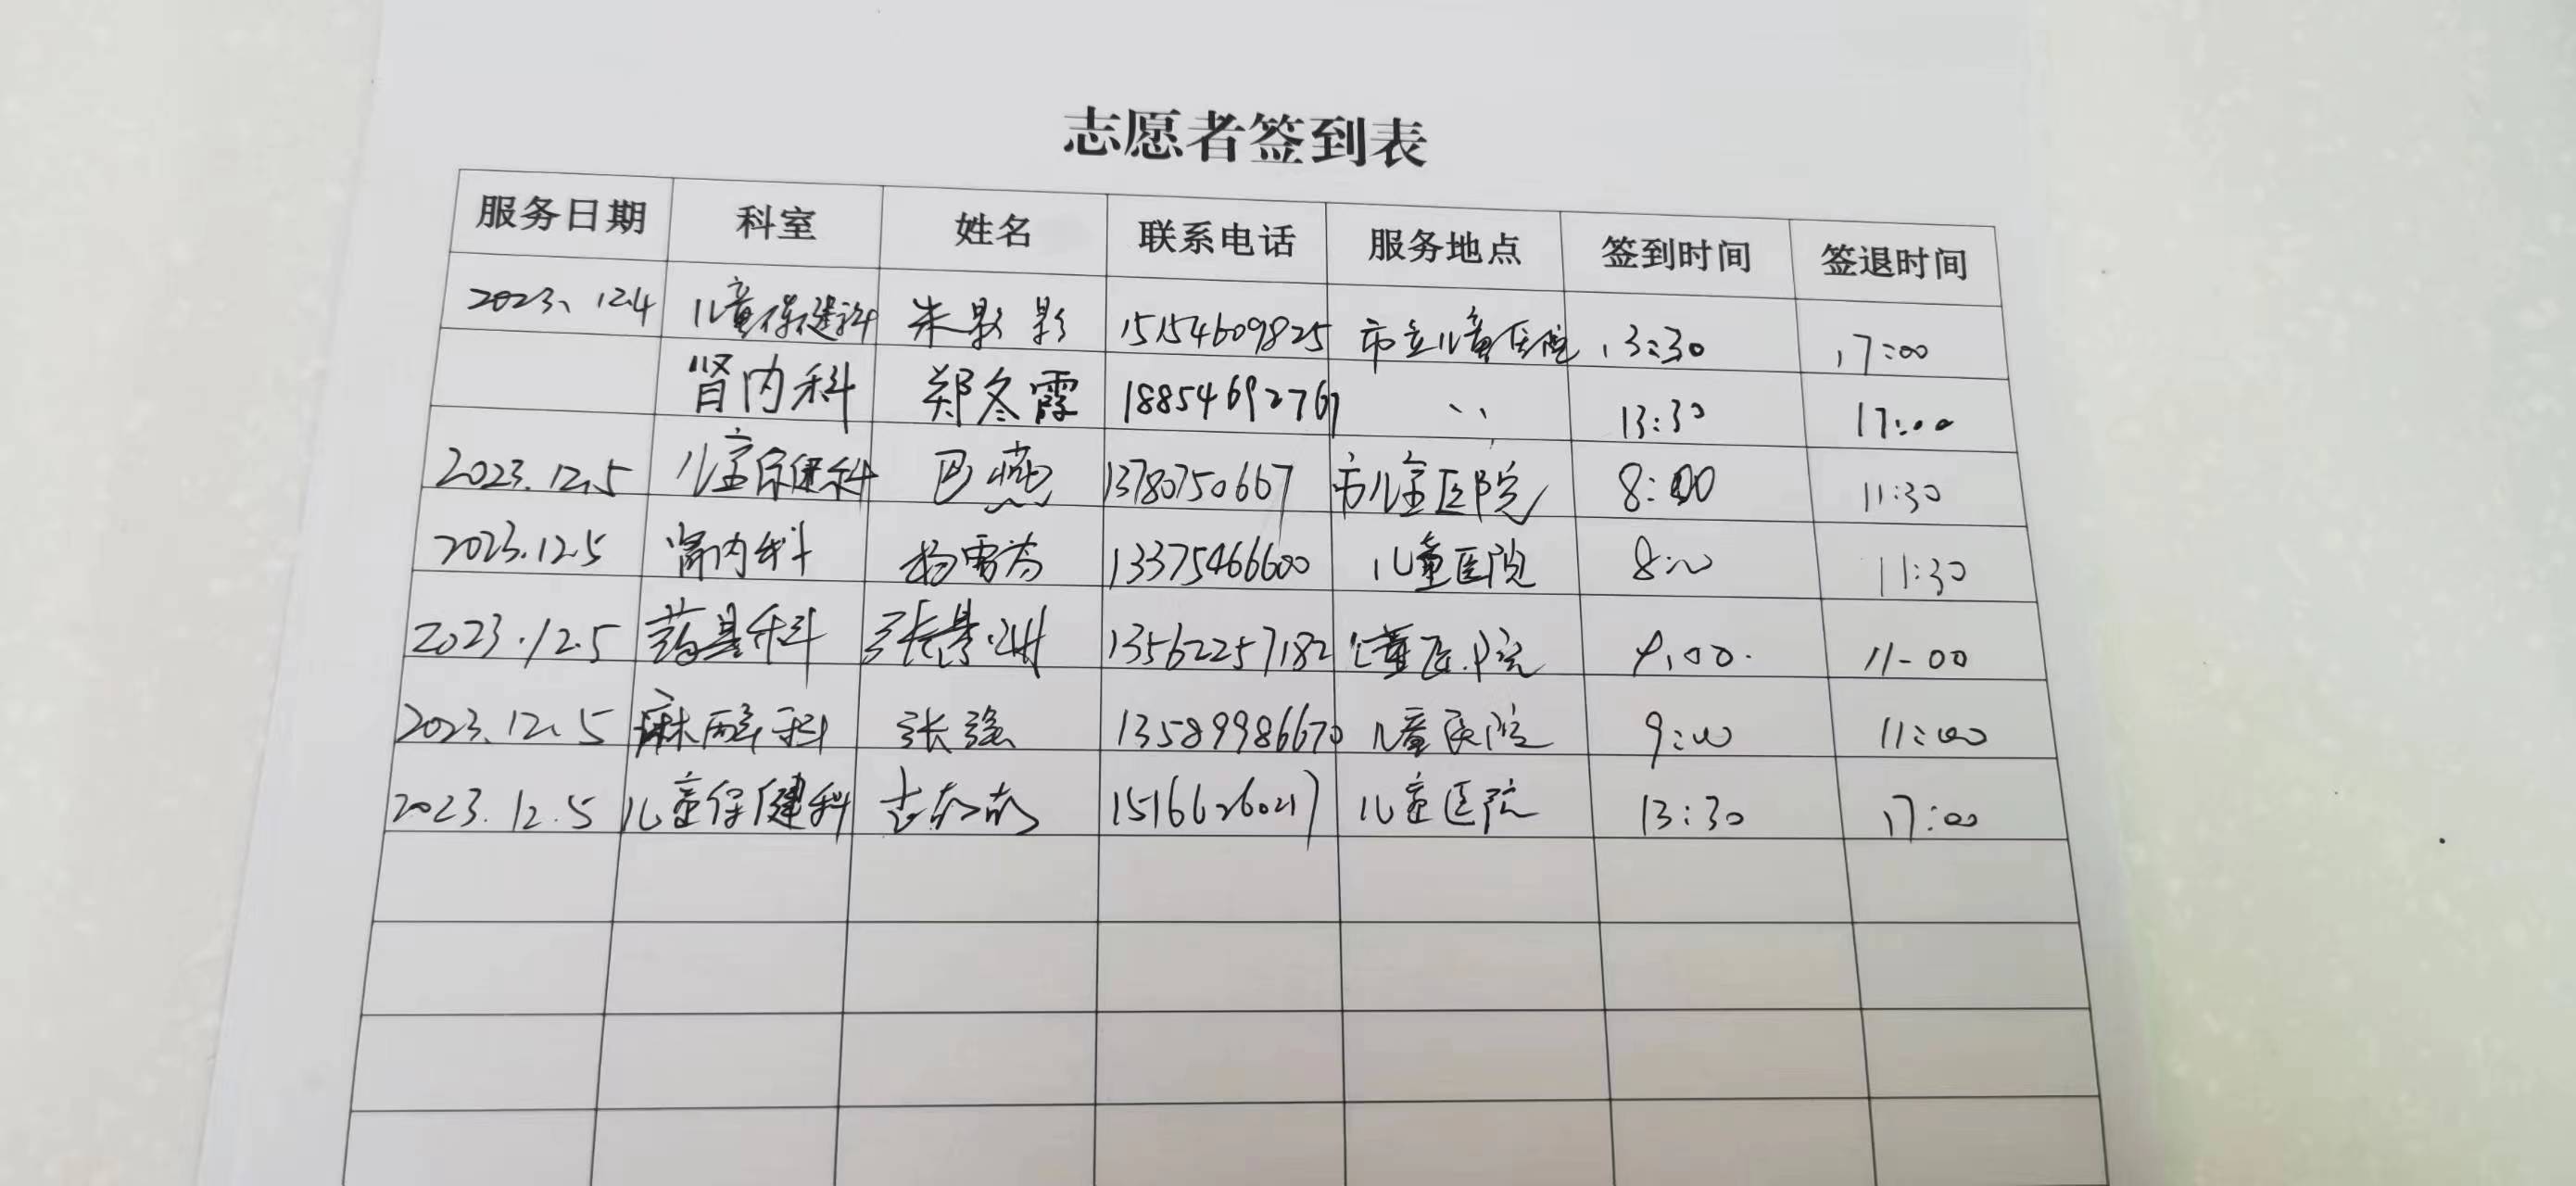 志愿者签到表
服务日期 科室 姓名 联系电话 服务地点 签到时间 签退时间
2023、12.4 儿童保健科 朱影影 15154609825 市立儿童医院 13:30 17:00
肾内科 郑冬霞 18854692767 、、 13:30 17:00
2023.12.5 儿童保健科 巴燕 13780750667 市儿童医院 8:00 11:30
2023.12.5 肾内科 杨雪芬 13375466600 儿童医院 8:00 11:30
2023.12.5 药基科 张景洲 13562257182 儿童医院 9:00 11-00
2023.12.5 麻醉科 张强 13589986670 儿童医院 9:00 11:00
2023.12.5 儿童保健科 15166260217 儿童医院 13:30 17:00